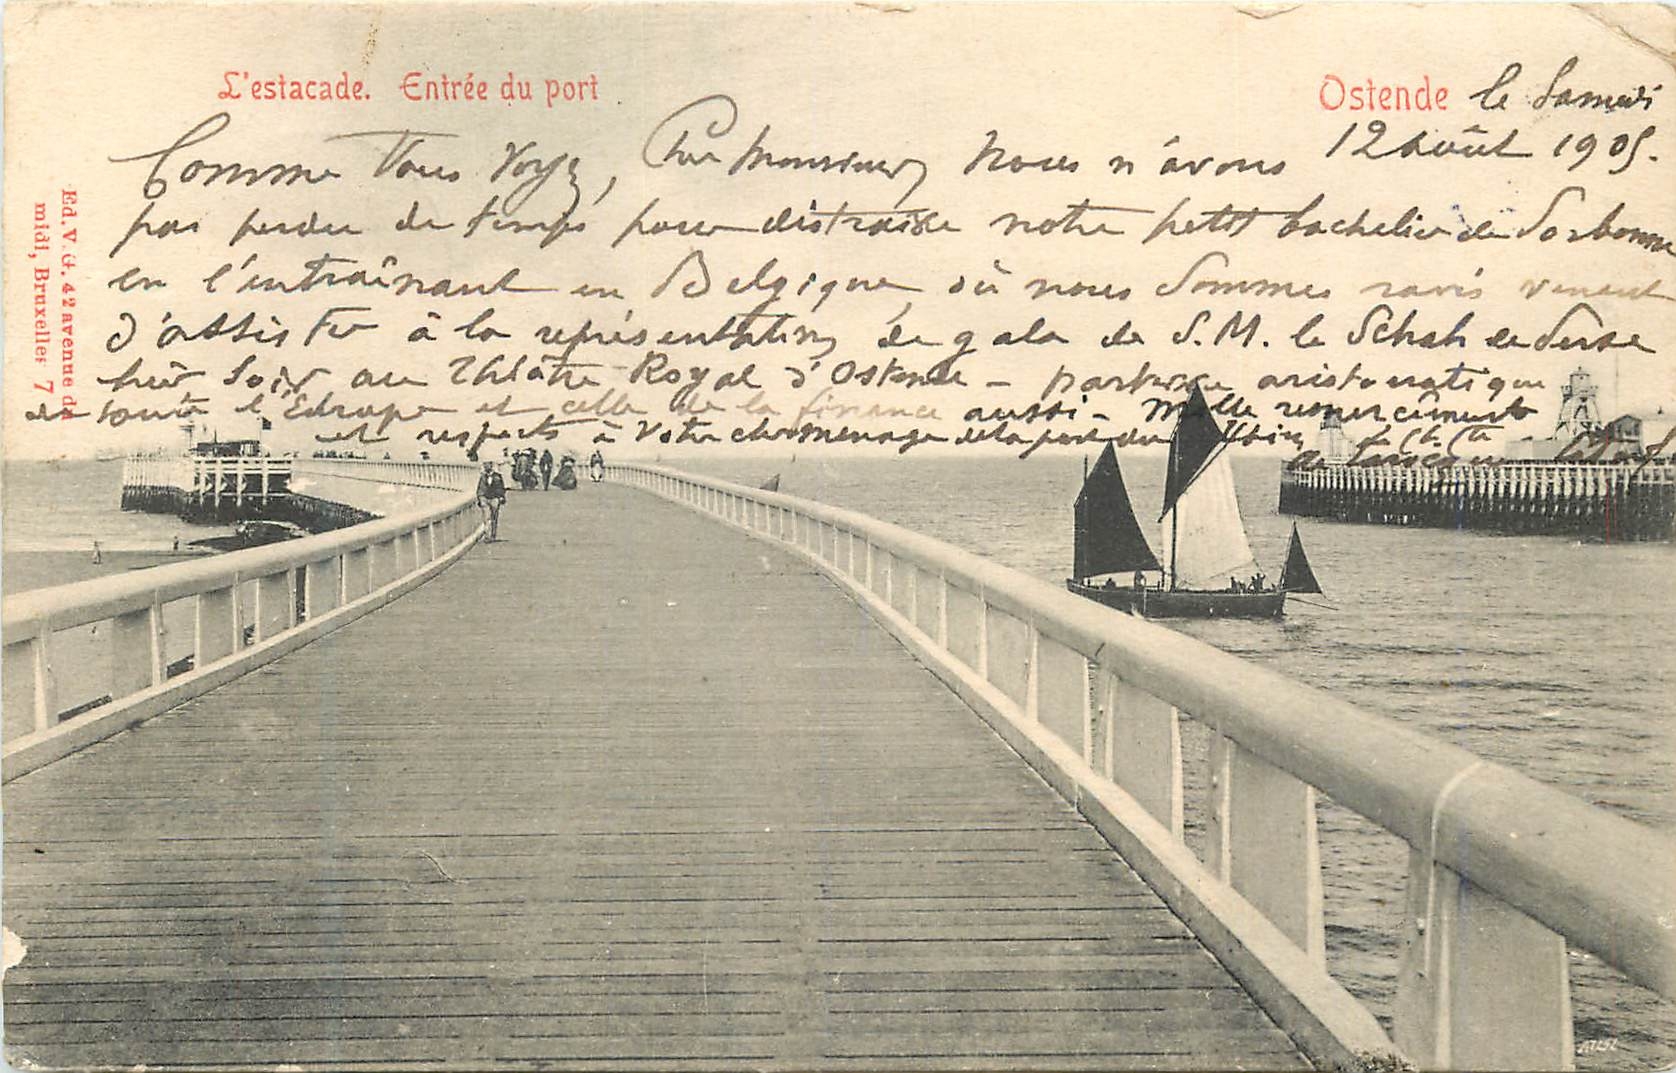 L'estacade. Entrée du port
Ostende le Samedi
12 Août 1905.
Comme Vous Voyez, Cher Monsieur, Nous n'avons
pas perdu de temps pour distraire notre petit bachelier de Sorbonne
en l'entraînant en Belgique, où nous Sommes ravis venant
d'assister à la représentation de gala de S. M. le Schah de Perse
hier Soir au Théâtre Royal d'Ostende – parterre aristocratique
de toute l'Europe et celle de la finance aussi – Mille remerciements
et respects à Votre cher ménage de la part du
Ed. V. G. 42 avenue du
midi, Bruxelles 7